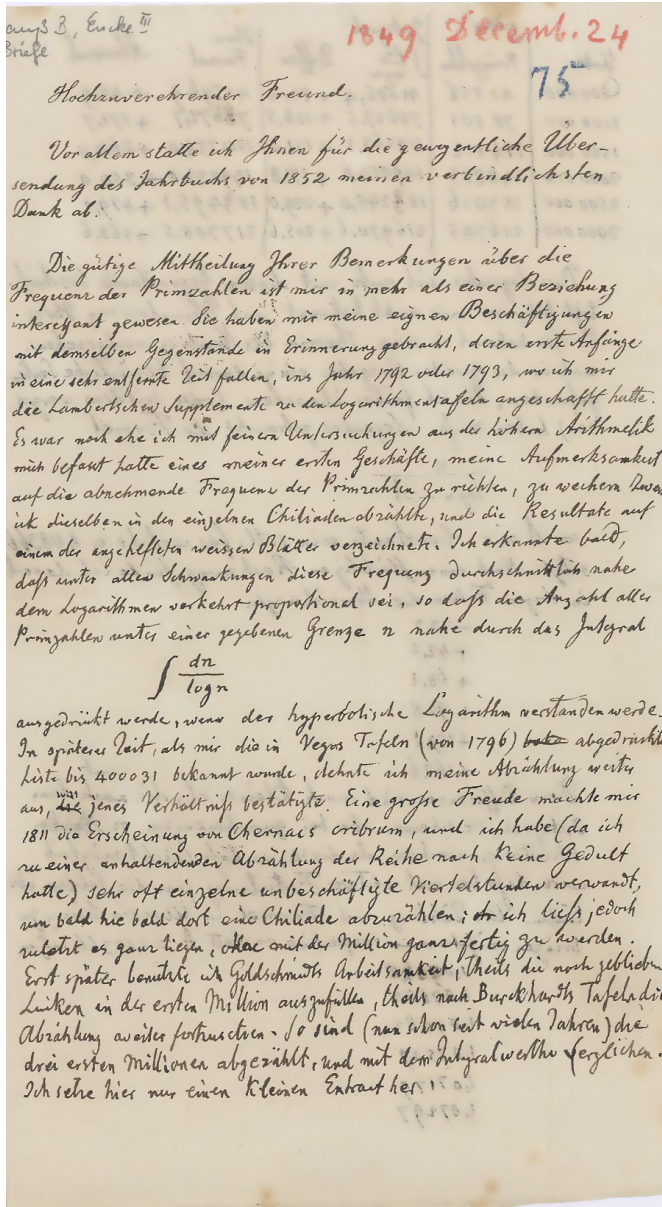 Gauß B, Encke III
Briefe
1849 Decemb. 24
75
Hochzuverehrender Freund.
Vor allem statte ich Ihnen für die gewogentliche Über-
sendung des Jahrbuchs von 1852 meinen verbindlichsten
Dank ab.
Die gütige Mittheilung Ihrer Bemerkungen über die
Frequenz der Primzahlen ist mir in mehr als einer Beziehung
interessant gewesen. Sie haben mir meine eignen Beschäftigungen
mit demselben Gegenstande in Erinnerung gebracht, deren erste Anfänge
in eine sehr entfernte Zeit fallen, ins Jahr 1792 oder 1793, wo ich mir
die Lambertschen Supplemente zu den Logarithmentafeln angeschafft hatte.
Es war noch ehe ich mit feinern Untersuchungen aus der höhern Arithmetik
mich befasst hatte eines meiner ersten Geschäfte, meine Aufmerksamkeit
auf die abnehmende Frequenz der Primzahlen zu richten, zu welchem Zweck
ich dieselben in den einzelnen Chiliaden abzählte, und die Resultate auf
einem der angehefteten weissen Blätter verzeichnete. Ich erkannte bald,
daß unter allen Schwankungen diese Frequenz durchschnittlich nahe
dem Logarithmen verkehrt proportional sei, so daß die Anzahl aller
Primzahlen unter einer gegebenen Grenze n nahe durch das Integral
∫ dn / log n
ausgedrückt werde, wenn der hyperbolische Logarithm verstanden werde.
In späterer Zeit, als mir die in Vegas Tafeln (von 1796) abgedruckte
Liste bis 400031 bekannt wurde, dehnte ich meine Abzählung weiter
aus, was jenes Verhältniß bestätigte. Eine große Freude machte mir
1811 die Erscheinung von Chernacs cribrum, und ich habe (da ich
zu einer anhaltendenden Abzählung der Reihe nach keine Gedult
hatte) sehr oft einzelne unbeschäftigte Viertelstunden verwandt,
um bald hie bald dort eine Chiliade abzuzählen; ich ließ jedoch
zuletzt es ganz liegen, ohne mit der Million ganz fertig zu werden.
Erst später benutzte ich Goldschmidts Arbeitsamkeit, theils die noch geblieben
Lücken in der ersten Million auszufüllen, theils nach Burckhardts Tafeln die
Abzählung weiter fortzusetzen. So sind (nun schon seit vielen Jahren) die
drei ersten Millionen abgezählt, und mit dem Integralwerthe verglichen.
Ich setze hier nur einen kleinen Extract her